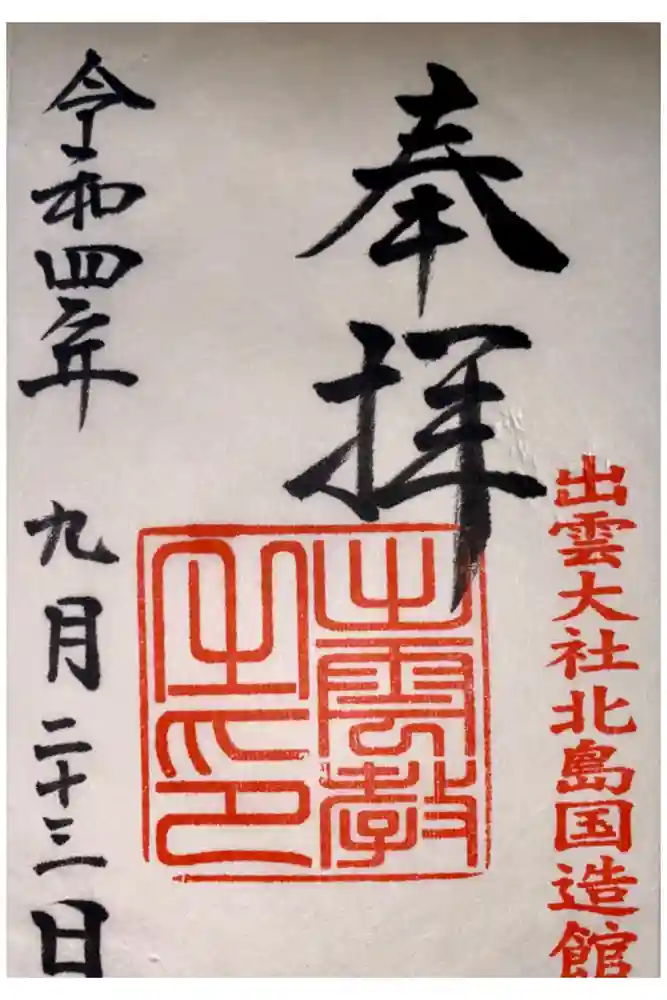 出雲大社北島国造館
奉拝
出雲教
之印
令和四年
九月二十三日